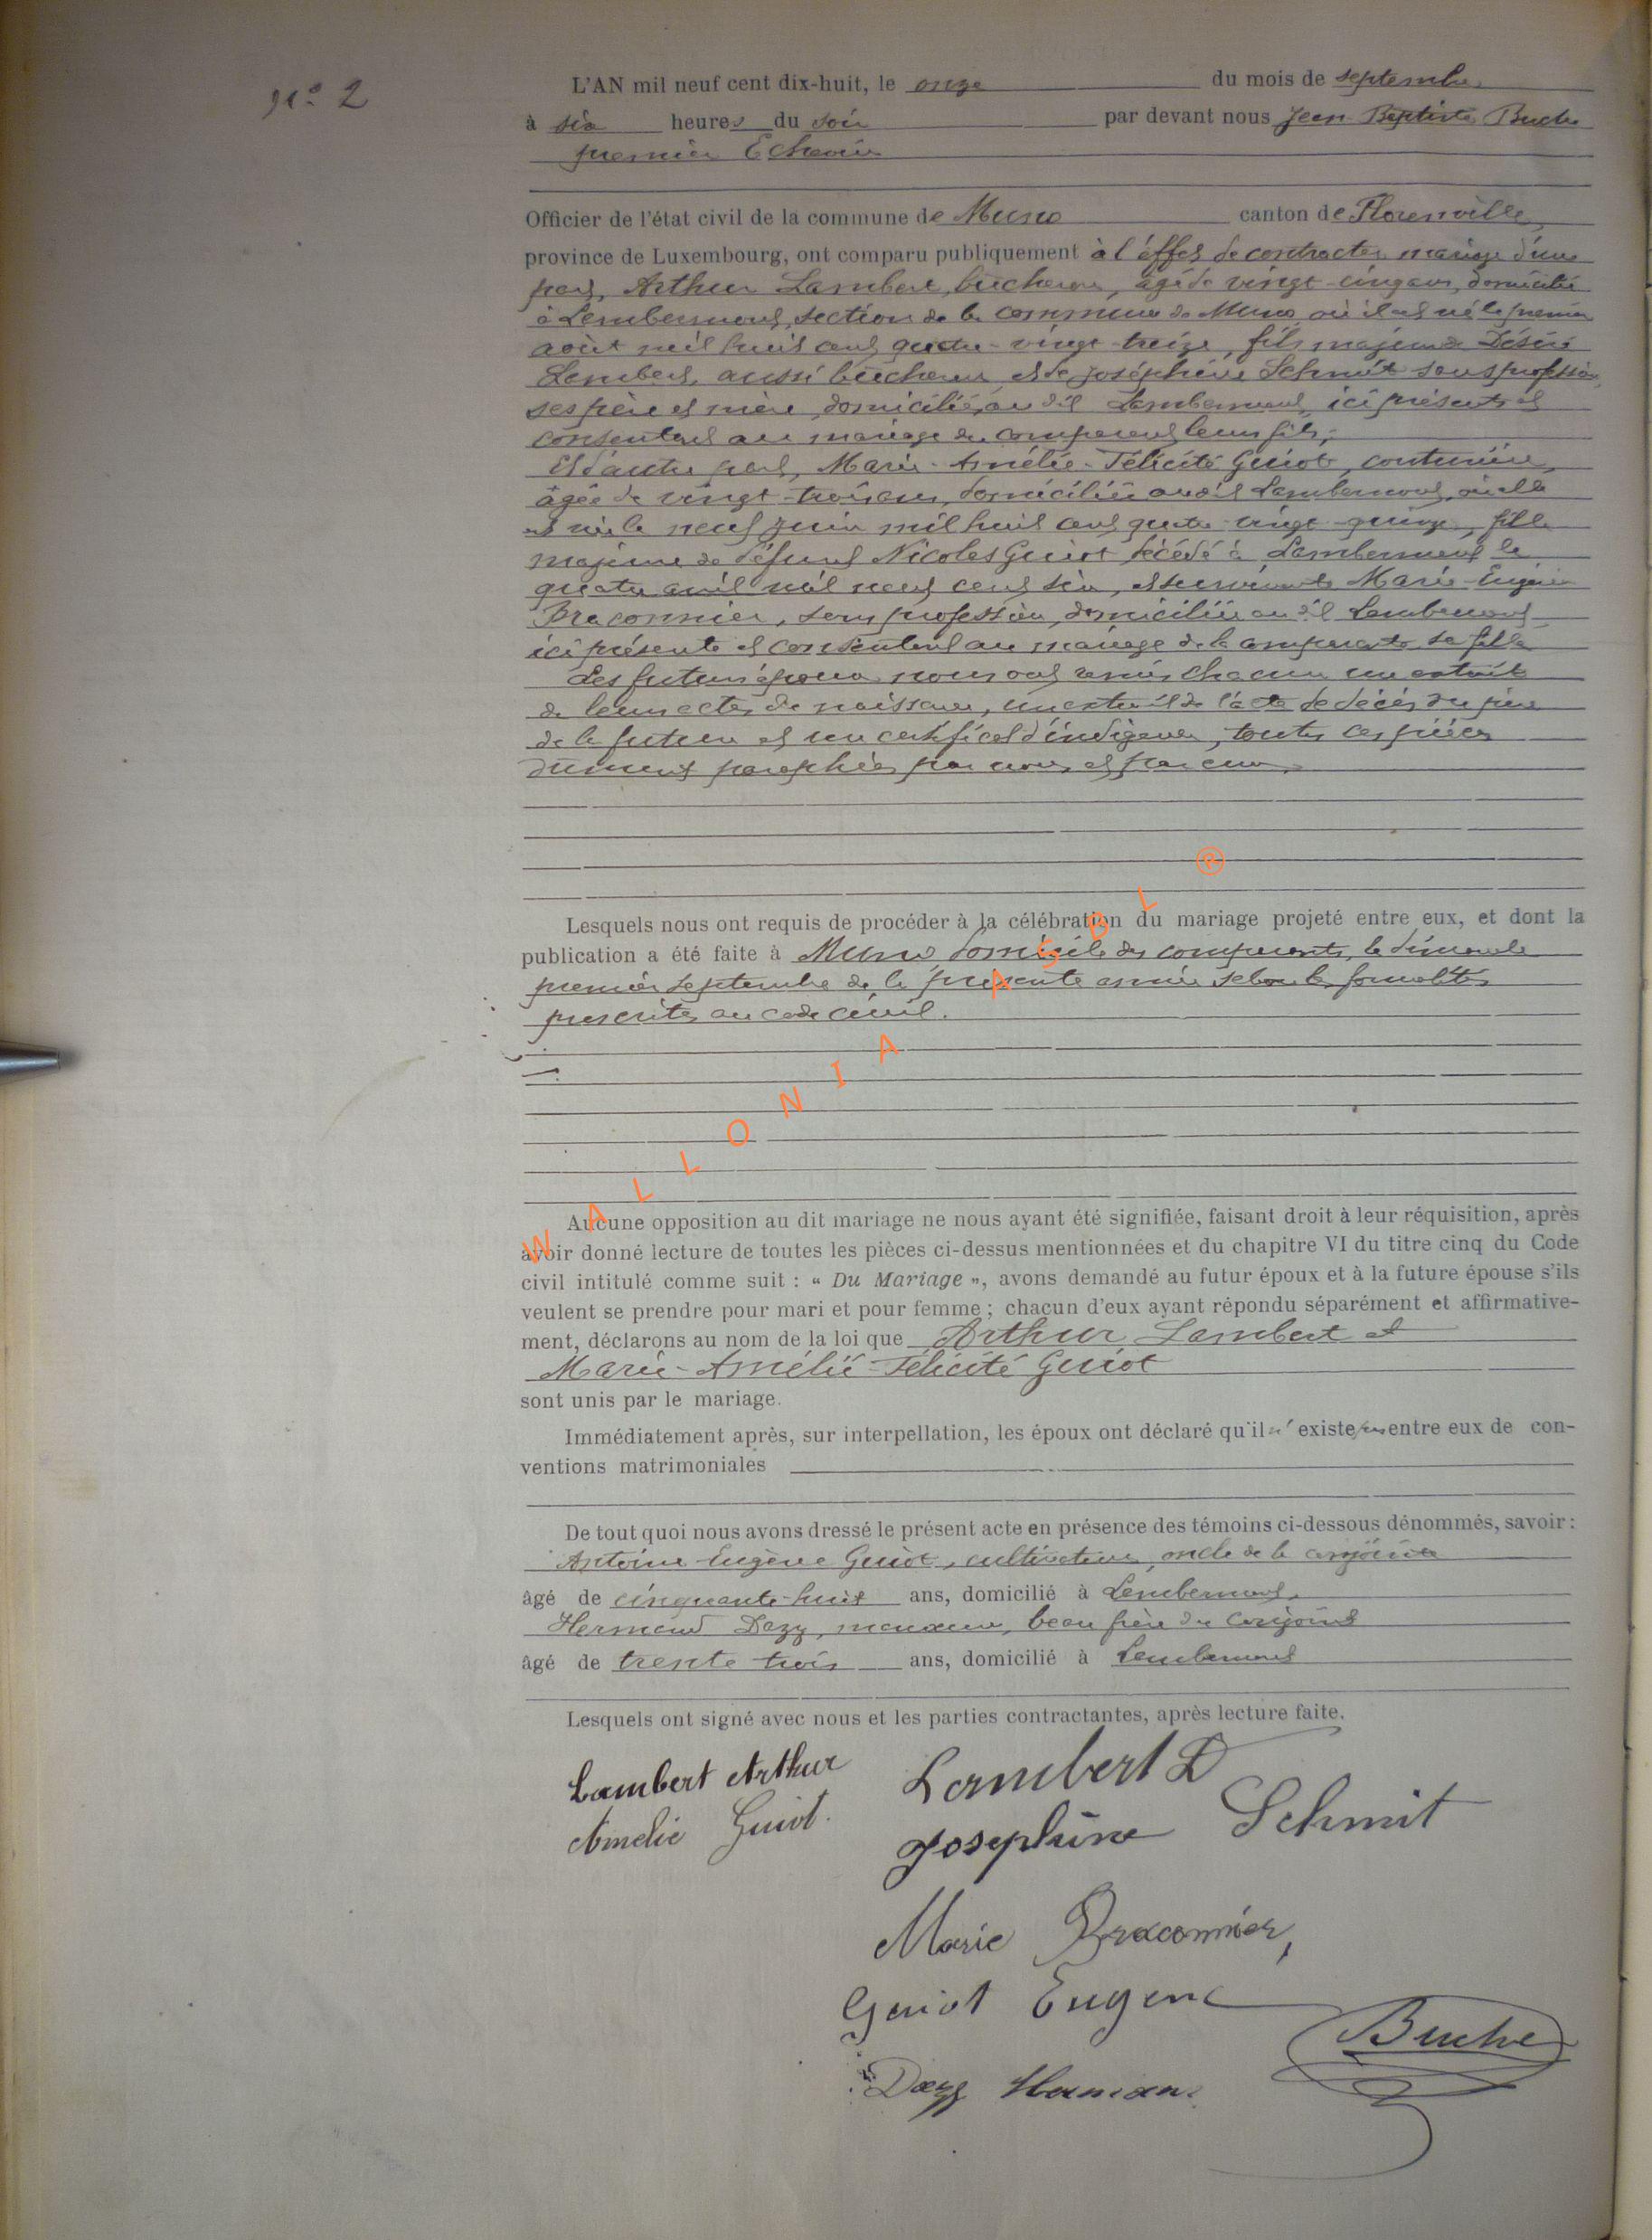 N° 2
L'AN mil neuf cent dix-huit, le onze du mois de septembre
à six heures du soir par devant nous Jean Baptiste Buche
premier Echevin
Officier de l'état civil de la commune de Muno canton de Florenville,
province de Luxembourg, ont comparu publiquement à l'effet de contracter mariage d'une
part, Arthur Lambert, bûcheron, âgé de vingt-cinq ans, domicilié
à Lambermont, section de la commune de Muno où il est né le premier
août mil huit cent quatre-vingt-treize, fils majeur de Désiré
Lambert, aussi bûcheron et de Joséphine Schmit sans profession,
ses père et mère, domiciliés au dit Lambermont, ici présents et
consentant au mariage du comparant leur fils;
Et d'autre part, Marie-Amélie-Félicité Guiot, couturière,
âgée de vingt-trois ans, domiciliée au dit Lambermont, où elle
est née le neuf juin mil huit cent quatre-vingt-quinze, fille
majeure de défunt Nicolas Guiot décédé à Lambermont le
quatre avril mil neuf cent six, et survivante Marie-Eugénie
Braconnier, sans profession, domiciliée au dit Lambermont
ici présente et consentant au mariage de la comparante sa fille
Les futurs époux nous ont remis chacun un extrait
de leurs actes de naissance, un extrait de l'acte de décès du père
de la future et un certificat d'indigence, toutes ces pièces
dûment paraphées par nous et par eux.
Lesquels nous ont requis de procéder à la célébration du mariage projeté entre eux, et dont la
publication a été faite à Muno domicile des comparants, le dimanche
premier septembre de la présente année selon les formalités
prescrites au code civil.
WALLONIA ASBL ®
Aucune opposition au dit mariage ne nous ayant été signifiée, faisant droit à leur réquisition, après
avoir donné lecture de toutes les pièces ci-dessus mentionnées et du chapitre VI du titre cinq du Code
civil intitulé comme suit : « Du Mariage », avons demandé au futur époux et à la future épouse s'ils
veulent se prendre pour mari et pour femme ; chacun d'eux ayant répondu séparément et affirmative-
ment, déclarons au nom de la loi que Arthur Lambert et
Marie-Amélie-Félicité Guiot
sont unis par le mariage.
Immédiatement après, sur interpellation, les époux ont déclaré qu'il n'existe pas entre eux de con-
ventions matrimoniales
De tout quoi nous avons dressé le présent acte en présence des témoins ci-dessous dénommés, savoir :
Antoine Eugène Guiot, cultivateur, oncle de la conjointe
âgé de cinquante-huit ans, domicilié à Lambermont,
Hermand Dazy, manœuvre, beau frère du conjoint
âgé de trente trois ans, domicilié à Lambermont
Lesquels ont signé avec nous et les parties contractantes, après lecture faite.
Lambert Arthur Lambert D
Amelie Guiot. Josephine Schmit
Marie Braconnier,
Guiot Eugene
Buche
Dazy Herman